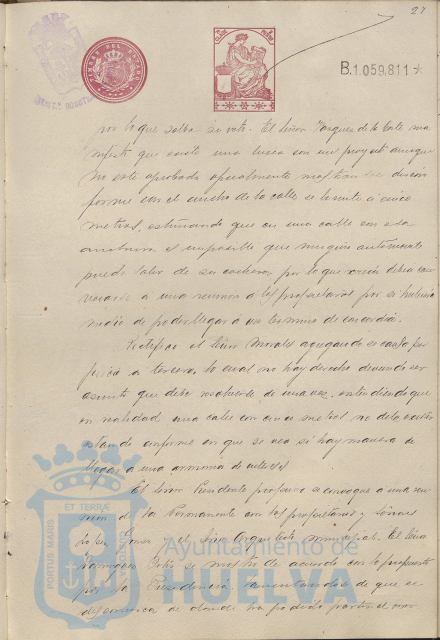 27
TIMBRE DEL ESTADO
B.1.059.811
por lo que salva su voto. El señor Vazquez de la Corte ma-
nifestó que existe una linea con un proyecto aunque
no esté aprobado oficialmente mostrandose discon-
forme con el ancho de la calle de veinte a cinco
metros, estimando que en una calle con esa
anchura es imposible que ningún automovil
pueda salir de su cochera, por lo que creía debía con-
vocarse a una reunion a los propietarios por si hubiera
medio de poder llegar a un termino de concordia.
Rectifica el señor Morales agregando se causa per-
juicio a tercero, lo cual no hay derecho deviendo ser
asunto que debe resolverse de una vez, entendiendo que
en realidad una calle con cinco metros no debe existir
estando conforme en que se vea si hay manera de
llegar a una armonia de intereses
El señor Presidente propone se convoque a una reu-
nion de la Permanente con los propietarios y señores
y el Señor Arquitecto municipal. El Señor
se mostró de acuerdo con lo propuesto
por la Presidencia, lamentandose de que se
desconozca de donde ha podido partir el
PORTUS MARIS ET TERRAE CUSTODIA
Ayuntamiento de
HUELVA